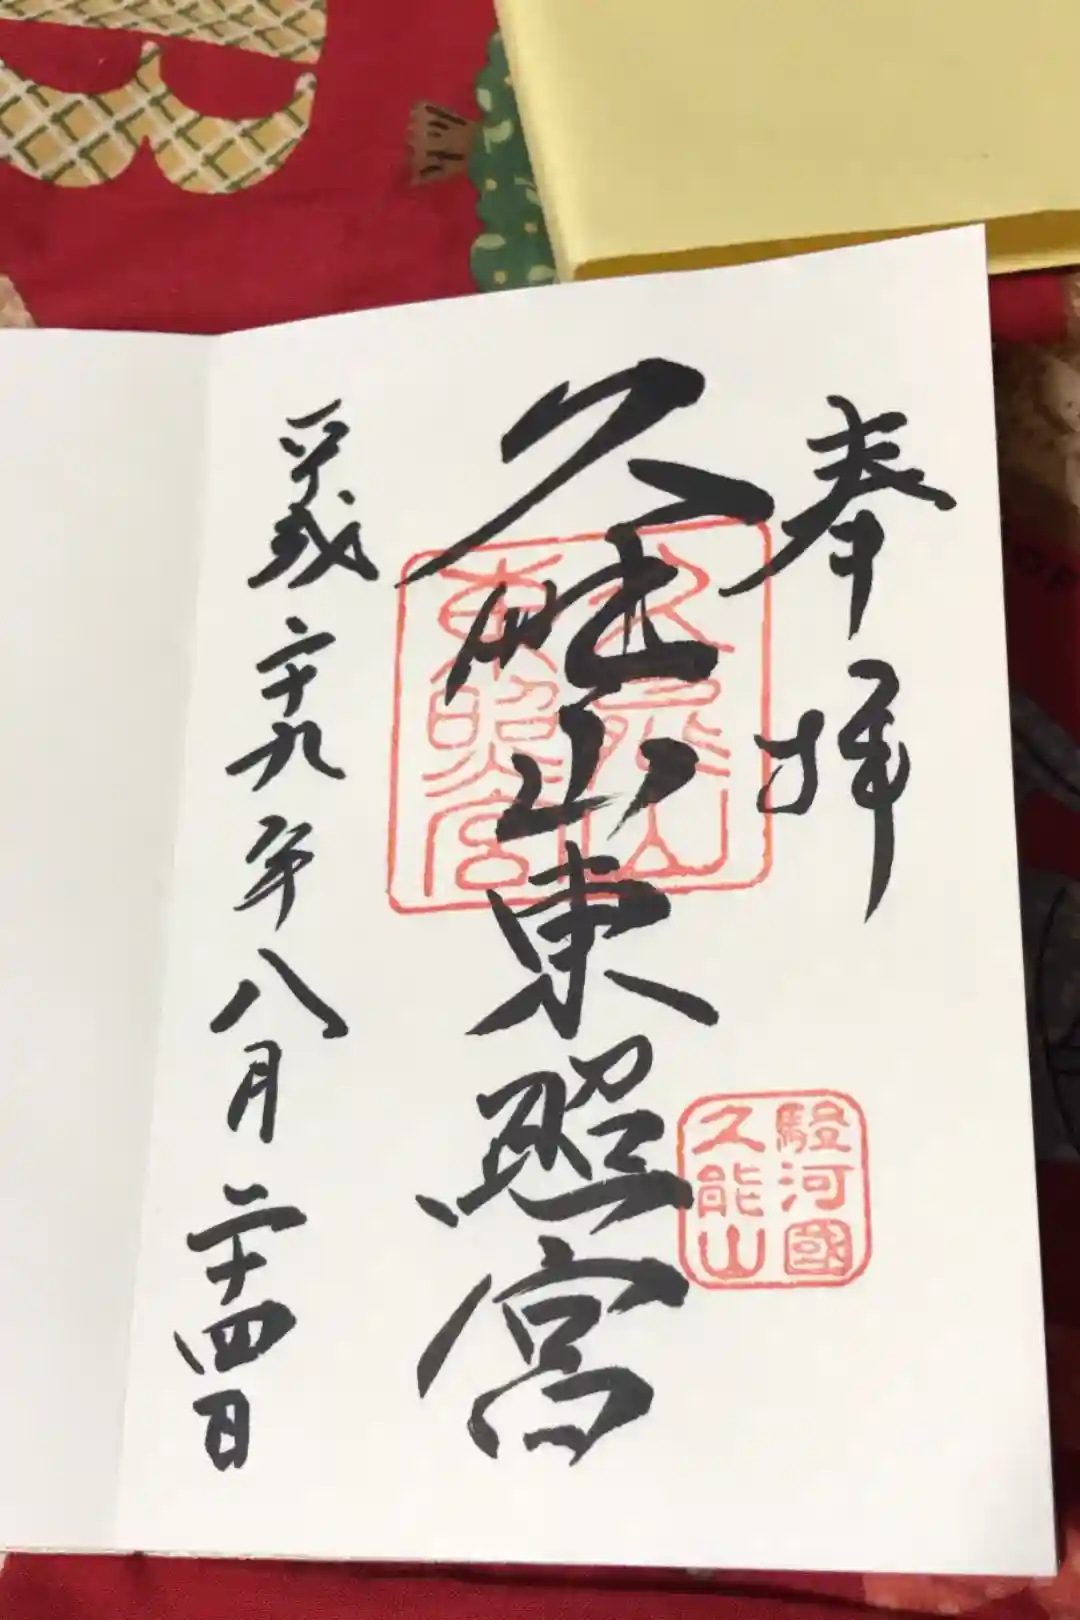 奉拝
久能山東照宮
久能山
東照宮
駿河國
久能山
平成二十九年八月二十四日